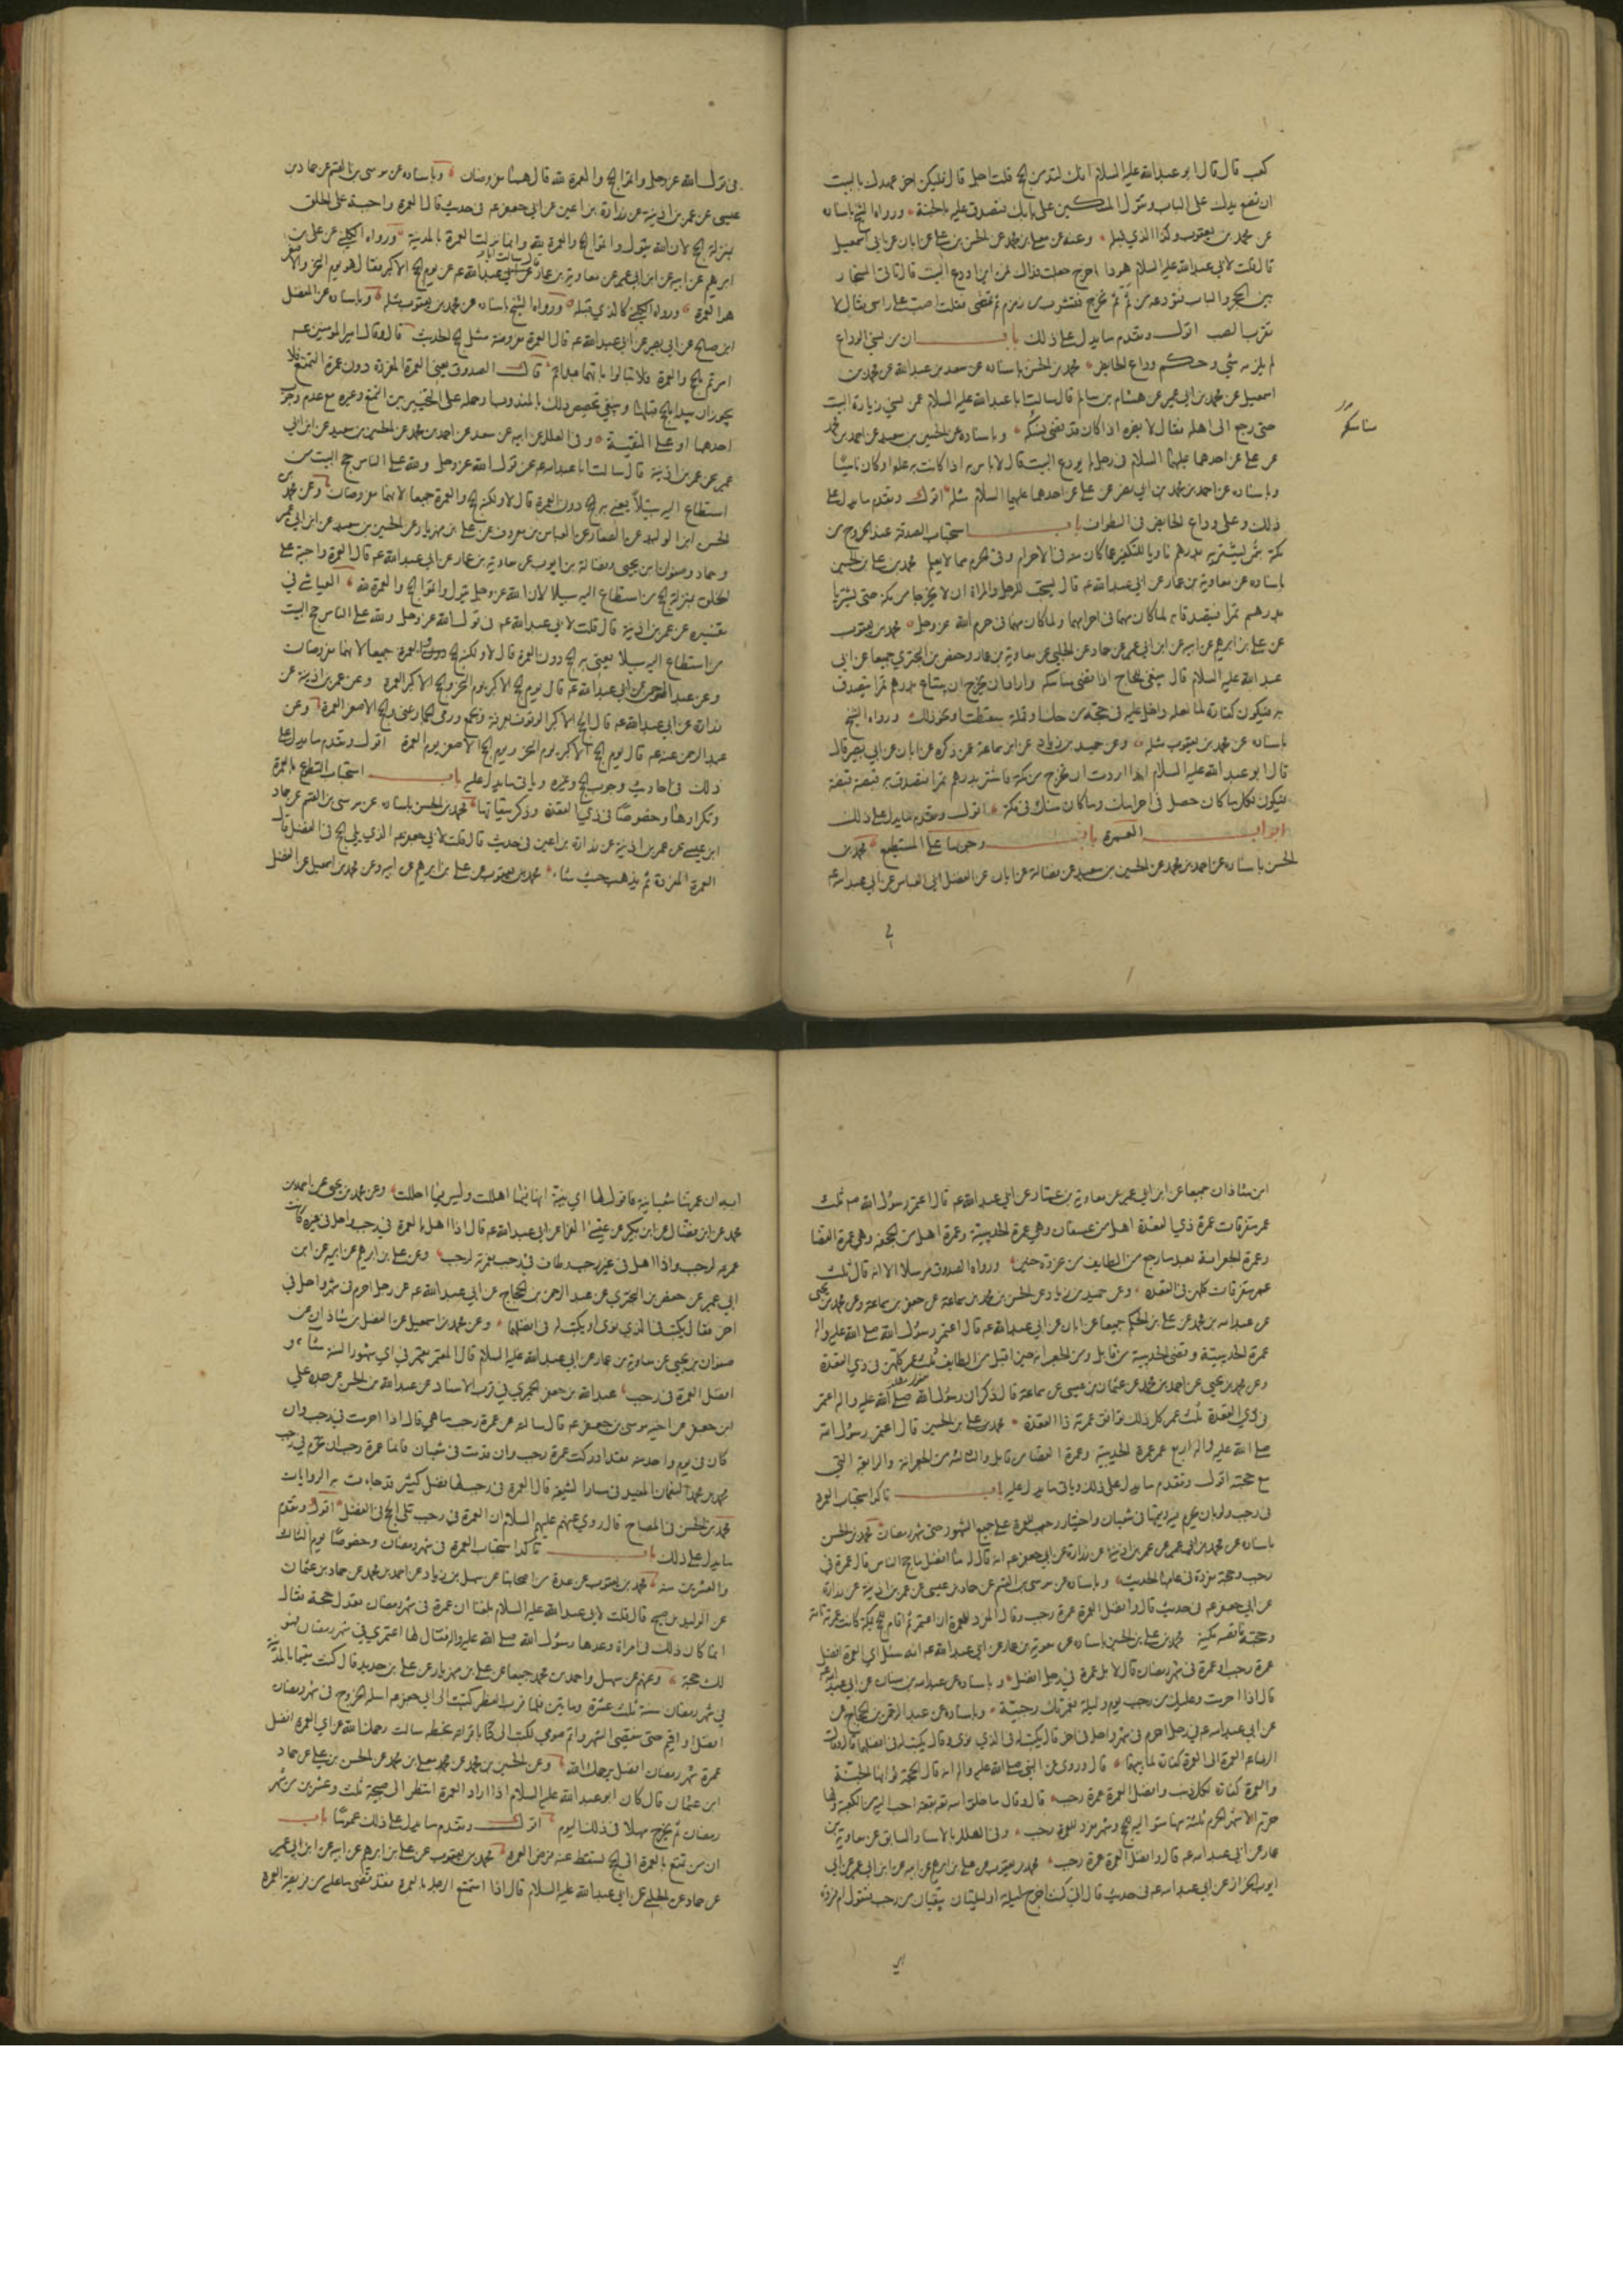 كعب قال قال ابو عبدالله عليه السلام انك لتدمن الحج قلت اجل قال فليكن اخر عهدك بالبيت
ان تضع يدك على الباب وتقول المسكين على بابك فتصدق عليه بالجنة ورواه الشيخ باسناده
عن محمد بن يعقوب وكذا الذي قبله وعنه عن معلى بن محمد عن الحسن بن علي عن ابان عن ابي اسمعيل
قال قلت لابي عبدالله عليه السلام هوذا اخرج جعلت فداك فمن اين اودع البيت قال تاتي المستجار
بين الحجر والباب فتودعه من ثم ثم تخرج فتشرب من زمزم ثم تمضي فقلت اصب على راسي فقال لا
تقرب الصب اقول وتقدم ما يدل على ذلك باب ان من نسي الوداع
لم يلزمه شي وحكم وداع الحائض محمد بن الحسن باسناده عن سعد بن عبدالله عن محمد بن
اسمعيل عن محمد بن ابي عمير عن هشام بن سالم قال سالت ابا عبدالله عليه السلام عمن نسي زيارة البيت
حتى رجع الى اهله فقال لا يضره اذا كان قد قضى منسكه وباسناده عن الحسين بن سعيد عن احمد بن محمد
مناسكه
عن علي عن احدهما عليهما السلام في رجل لم يودع البيت قال لا باس به اذا كانت به علة او كان ناسيا
وباسناده عن احمد بن محمد بن ابي نصر عن علي عن احدهما عليهما السلام مثله اقول وتقدم ما يدل على
ذلك وعلى وداع الحائض في الطواف باب استحباب الصدقة عند الخروج من
مكة بتمر يشتريه بدرهم ناويا للتكفير عما كان منه في الاحرام وفي الحرم مما لا يعلم محمد بن علي بن الحسين
باسناده عن معاوية بن عمار عن ابي عبدالله ع قال يستحب للرجل والمراة ان لا يخرجا من مكة حتى يشتريا
بدرهم تمرا فيتصدقا به لما كان منهما في احرامهما ولما كان منهما في حرم الله عز وجل محمد بن يعقوب
عن علي بن ابرهيم عن ابيه عن ابن ابي عمير عن حماد عن الحلبي عن معاوية بن عمار وحفص بن البختري جميعا عن ابي
عبد الله عليه السلام قال ينبغي للحاج اذا قضى مناسكه واراد ان يخرج ان يبتاع بدرهم تمرا يتصدق
به فيكون كفارة لما لعله دخل عليه في حجه من حك او قملة سقطت او نحو ذلك ورواه الشيخ
باسناده عن محمد بن يعقوب مثله وعن حميد بن زياد عن ابن سماعة عمن ذكره عن ابان عن ابي بصير قال
قال ابو عبد الله عليه السلام اذا اردت ان تخرج من مكة فاشتر بدرهم تمرا فتصدق به قبضة قبضة
فيكون لكل ما كان حصل في احرامك وما كان منك في مكة اقول وتقدم ما يدل على ذلك
ابواب العمرة باب وجوبها على المستطيع محمد بن
الحسن باسناده عن احمد بن محمد عن الحسين بن سعيد عن فضالة عن ابان عن الفضل ابي العباس عن ابي عبدالله ع
في قول الله عز وجل واتموا الحج والعمرة لله قال هما مفروضان وباسناده عن موسى بن القسم عن حماد بن
عيسى عن عمر بن اذينة عن زرارة بن اعين عن ابي جعفر ع في حديث قال العمرة واجبة على الخلق
بمنزلة الحج لان الله يقول واتموا الحج والعمرة لله وانما نزلت العمرة بالمدينة ورواه الكليني عن علي بن
ابرهيم عن ابيه عن ابن ابي عمير عن معاوية بن عمار قال سالت ابا عبدالله ع عن يوم الحج الاكبر فقال هو يوم النحر والاصغر
هو العمرة ورواه الكليني كالذي قبله ورواه الشيخ باسناده عن محمد بن يعقوب مثله وباسناده عن المفضل
ابن صالح عن ابي بصير عن ابي عبدالله ع قال العمرة مفروضة مثل الحج الحديث قال وقال امير المؤمنين ع
امرتم بالحج والعمرة فلا تبالوا بايهما بداتم قال الصدوق يعني العمرة المفردة دون عمرة التمتع فلا
يجوز ان يبدا بالحج قبلها
احدهما او على التقية وفي العلل عن ابيه عن سعد عن احمد بن محمد عن الحسين بن سعيد عن ابن ابي
عمير عن عمر بن اذينة قال سالت ابا عبدالله ع عن قول الله عز وجل ولله على الناس حج البيت من
استطاع اليه سبيلا يعني به الحج دون العمرة قال لا ولكنه الحج والعمرة جميعا لانهما مفروضان وعن محمد بن
الحسن ابن الوليد عن الصفار عن العباس بن معروف عن علي بن مهزيار عن الحسين بن سعيد عن ابن ابي عمير
وحماد وصفوان بن يحيى وفضالة بن ايوب عن معاوية بن عمار عن ابي عبدالله ع قال العمرة واجبة على
الخلق بمنزلة الحج من استطاع اليه سبيلا لان الله عز وجل يقول واتموا الحج والعمرة لله العياشي في
تفسيره عن عمر بن اذينة قال قلت لابي عبدالله ع في قول الله عز وجل ولله على الناس حج البيت
من استطاع اليه سبيلا يعني به الحج دون العمرة قال لا ولكنه الحج والعمرة جميعا لانهما مفروضان
وعن عبد الرحمن عن ابي عبدالله ع قال يوم الحج الاكبر يوم النحر والحج الاكبر العمرة وعن عمر بن اذينة عن
زرارة عن ابي عبدالله ع قال الحج الاكبر الوقوف بعرفة وبجمع ورمي الجمار بمنى والحج الاصغر العمرة وعن
عبد الرحمن عنه ع قال يوم الحج الاكبر يوم النحر ويوم الحج الاصغر يوم العمرة اقول وتقدم ما يدل على
ذلك في احاديث وجوب الحج وغيره وياتي ما يدل عليه باب استحباب التطوع بالعمرة
وتكرارها وخصوصا في ذي القعدة وذكر ميقاتها محمد بن الحسن باسناده عن موسى بن القسم عن حماد
ابن عيسى عن عمر بن اذينة عن زرارة بن اعين في حديث قال قلت لابي جعفر ع الذي يلي الحج في الفضل قال
العمرة المفردة ثم يذهب حيث شاء محمد بن يعقوب عن علي بن ابرهيم عن ابيه وعن محمد بن اسمعيل عن الفضل
ابن شاذان جميعا عن ابن ابي عمير عن معاوية بن عمار عن ابي عبدالله ع قال اعتمر رسول الله ص ثلث
عمر متفرقات عمرة ذي القعدة اهل من عسفان وهي عمرة الحديبية وعمرة اهل من الجحفة وهي عمرة القضا
وعمرة الجعرانة بعد ما رجع من الطايف من غزوة حنين ورواه الصدوق مرسلا الا انه قال ثلث
عمر متفرقات كلهن في القعدة وعن حميد بن زياد عن الحسن بن محمد بن سماعة عن جعفر بن سماعة وعن محمد بن يحيى
عن عبدالله بن محمد عن علي بن الحكم جميعا عن ابان عن ابي عبدالله ع قال اعتمر رسول الله صلى الله عليه واله
عمرة الحديبية وقضى الحديبية من قابل ومن الجعرانة حين اقبل من الطايف ثلث عمر كلهن في ذي القعدة
وعن محمد بن يحيى عن احمد بن محمد عن عثمان بن عيسى عن سماعة قال ذكر ان رسول الله صلى الله عليه واله اعتمر
في ذي القعدة ثلث عمر كل ذلك توافق عمرته ذا القعدة محمد بن علي بن الحسين قال اعتمر رسول الله
صلى الله عليه واله اربع عمر عمرة الحديبية وعمرة القضا من قابل والثالثة من الجعرانة والرابعة التي
مع حجته اقول وتقدم ما يدل على ذلك وياتي ما يدل عليه باب تاكد استحباب العمرة
في رجب ولو بان يحرم فيه ويتمها في شعبان واختيار رجب للعمرة على جميع الشهور حتى شهر رمضان محمد بن الحسن
باسناده عن محمد بن ابي عمير عن عمر بن اذينة عن زرارة عن ابي جعفر ع انه قال له ما افضل ما حج الناس قال عمرة في
رجب وحجة مفردة في عامها الحديث وباسناده عن موسى بن القسم عن حماد بن عيسى عن عمر بن اذينة عن زرارة
عن ابي جعفر ع في حديث قال وافضل العمرة عمرة رجب وقال المفرد للعمرة ان اعتمر ثم اقام للحج بمكة كانت عمرته تامة
وحجته ناقصة مكية محمد بن علي بن الحسين باسناده عن معوية بن عمار عن ابي عبدالله ع انه سئل اي العمرة افضل
عمرة رجب او عمرة في شهر رمضان قال لا بل عمرة في رجب افضل وباسناده عن عبدالله بن سنان عن ابي عبدالله ع
قال اذا احرمت وعليك من رجب يوم وليلة فعمرتك رجبية وباسناده عن عبد الرحمن بن الحجاج عن
عن ابي عبدالله ع في رجل احرم في شهر واحل في اخر قال يكتب له في الذي نوى وقال يكتب له في افضلهما قال وقال
الرضا ع العمرة الى العمرة كفارة لما بينهما قال وروي عن النبي صلى الله عليه واله انه قال الحجة ثوابها الجنة
والعمرة كفارة لكل ذنب وافضل العمرة عمرة رجب قال وقال ما خلق الله بقعة احب اليه من الكعبة ولها
حرم الاشهر الحرم ثلثة منها متوالية للحج وشهر مفرد للعمرة رجب وفي العلل بالاسناد السابق عن معاوية بن
عمار عن ابي عبدالله ع قال وافضل العمرة عمرة رجب محمد بن يعقوب عن علي بن ابرهيم عن ابيه عن ابن ابي عمير عن ابي
ايوب الخزاز عن ابي عبدالله ع في حديث قال اني كنت اخرج لليلة او لليلتين تبقيان من رجب فتقول ام فروة
اي
ابه ان عمرتنا شعبانية فاقول لها اي بنية انها فيما اهللت وليس فيما احللت وعن محمد بن يحيى عن احمد بن
محمد عن ابن فضال عن ابن بكير عن عيسى الفرا عن ابي عبدالله ع قال اذا اهل بالعمرة في رجب واحل في غيره كانت
عمرته لرجب واذا اهل في غير رجب وطاف في رجب فعمرته لرجب وعن علي بن ابرهيم عن ابيه عن ابن
ابي عمير عن حفص بن البختري عن عبد الرحمن بن الحجاج عن ابي عبدالله ع عن رجل احرم في شهر واحل في
اخر فقال يكتب في الذي نوى او يكتب له في افضلهما وعن محمد بن اسمعيل عن الفضل بن شاذان عن
صفوان بن يحيى عن معاوية بن عمار عن ابي عبدالله عليه السلام قال المعتمر يعتمر في اي شهور السنة شاء و
افضل العمرة في رجب عبدالله بن جعفر الحميري في قرب الاسناد عن عبدالله بن الحسن عن جده علي
ابن جعفر عن اخيه موسى بن جعفر ع قال سالته عن عمرة رجب ما هي قال اذا احرمت في رجب وان
كان في يوم واحد منه فقد ادركت عمرة رجب وان قدمت في شعبان فانما عمرة رجب ان تحرم في رجب
محمد بن محمد النعمان المفيد في مسار الشيعة قال العمرة في رجب لها فضل كثير قد جاءت به الروايات
محمد بن الحسن في المصباح قال روي عنهم عليهم السلام ان العمرة في رجب تلي الحج في الفضل اقول وتقدم
ما يدل على ذلك باب تاكد استحباب العمرة في شهر رمضان وخصوصا يوم الثالث
والعشرين منه محمد بن يعقوب عن عدة من اصحابنا عن سهل بن زياد عن احمد بن محمد عن حماد بن عثمان
عن الوليد بن صبيح قال قلت لابي عبدالله عليه السلام بلغنا ان عمرة في شهر رمضان تعدل حجة فقال
انما كان ذلك في امراة وعدها رسول الله صلى الله عليه واله فقال لها اعتمري في شهر رمضان فهو
لك حجة وعنهم عن سهل واحمد بن محمد جميعا عن علي بن مهزيار عن علي بن حديد قال كنت مقيما بالمدينة
في شهر رمضان سنة ثلث عشرة وماتين فلما قرب الفطر كتبت الى ابي جعفر ع اساله الخروج في شهر رمضان
افضل او اقيم حتى ينقضي الشهر واتم صومي فكتب الي كتابا قراته بخطه سالت رحمك الله عن اي العمرة افضل
عمرة شهر رمضان افضل يرحمك الله وعن الحسين بن محمد عن معلى بن محمد عن الحسن بن علي عن حماد
ابن عثمان قال كان ابو عبدالله عليه السلام اذا اراد العمرة انتظر الى صبيحة ثلث وعشرين من شهر
رمضان ثم يخرج مهلا في ذلك اليوم اقول وتقدم ما يدل على ذلك عموما باب
ان من تمتع بالعمرة الى الحج يسقط عنه فرض العمرة محمد بن يعقوب عن علي بن ابرهيم عن ابيه عن ابن ابي عمير
عن حماد عن الحلبي عن ابي عبدالله عليه السلام قال اذا استمتع الرجل بالعمرة فقد قضى ما عليه من فريضة العمرة